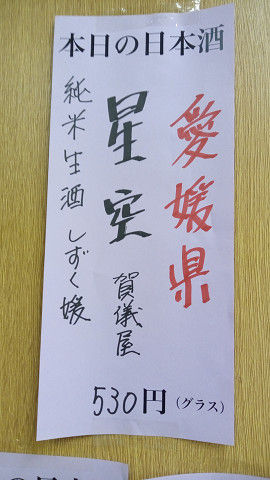 本日の日本酒
愛媛県
星空 賀儀屋
純米生酒 しずく媛
530円(グラス)